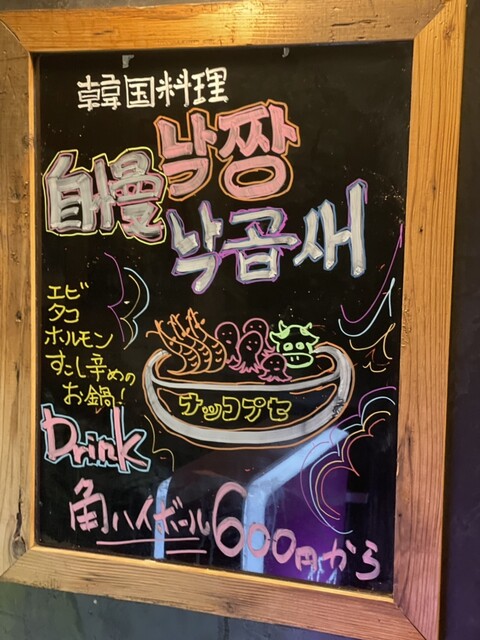 韓国料理
낙짱
自慢
낙곱새
エビ
タコ
ホルモン
すこし辛めの
お鍋!
ナッコプセ
Drink
角ハイボール600円から